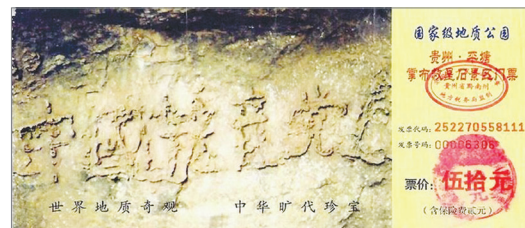 中国共产党
世界地质奇观 中华旷代珍宝
国家级地质公园
贵州·平塘
掌布藏星石景区门票
贵州省黔南州
发票代码：252270558111
发票号码：00006306
票价：伍拾元
（含保险费贰元）